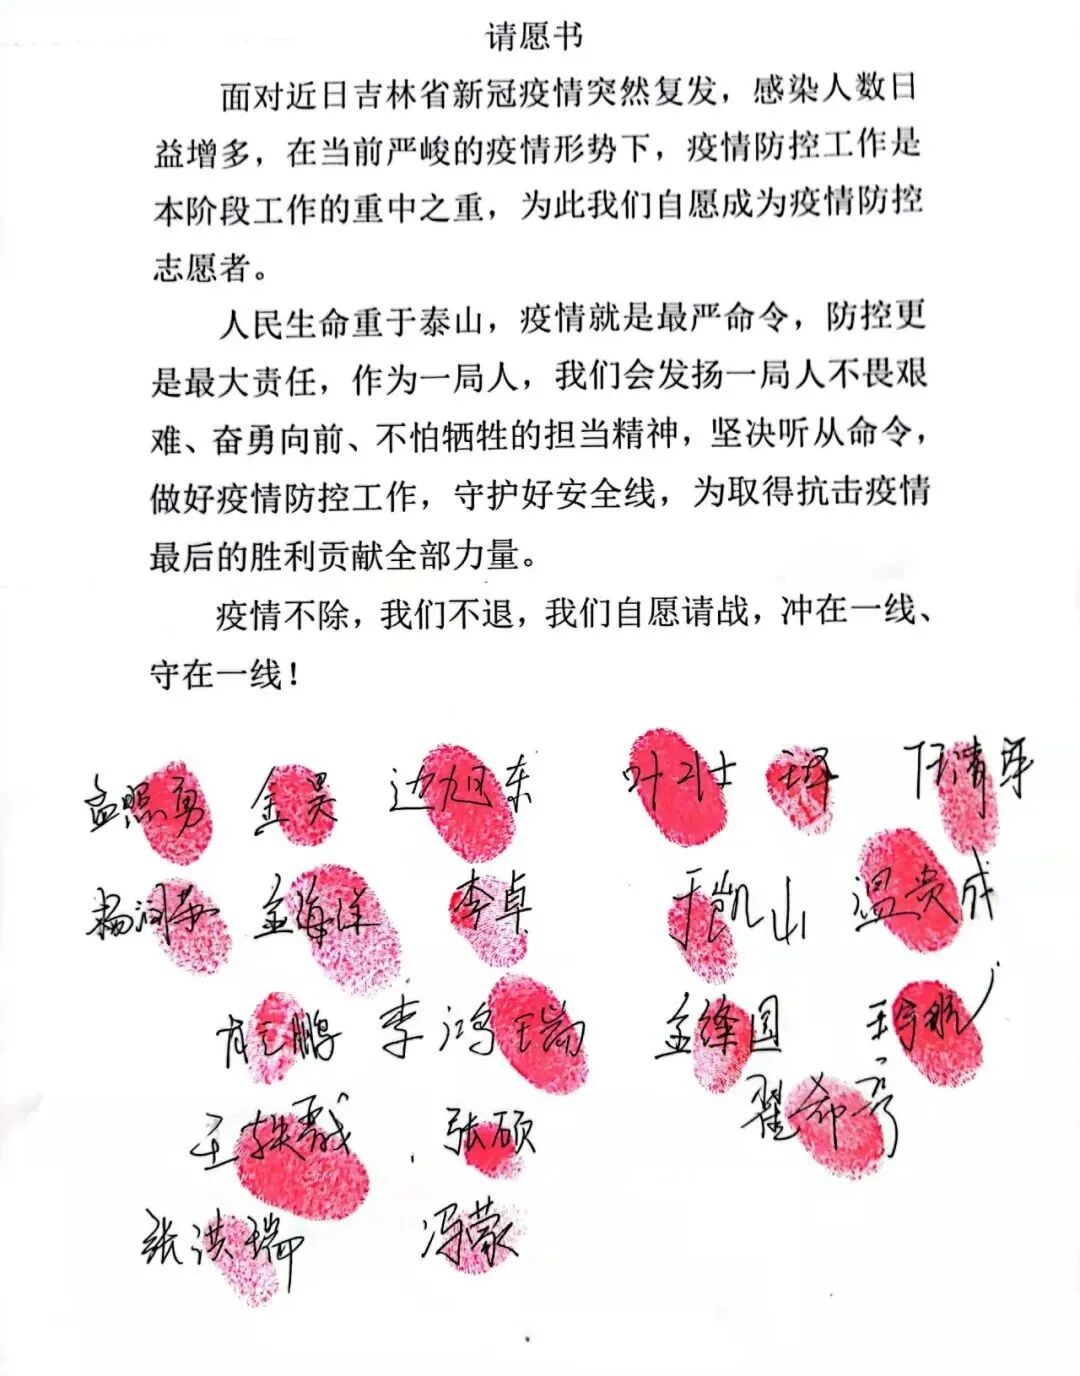 请愿书
面对近日吉林省新冠疫情突然复发，感染人数日
益增多，在当前严峻的疫情形势下，疫情防控工作是
本阶段工作的重中之重，为此我们自愿成为疫情防控
志愿者。
人民生命重于泰山，疫情就是最严命令，防控更
是最大责任，作为一局人，我们会发扬一局人不畏艰
难、奋勇向前、不怕牺牲的担当精神，坚决听从命令，
做好疫情防控工作，守护好安全线，为取得抗击疫情
最后的胜利贡献全部力量。
疫情不除，我们不退，我们自愿请战，冲在一线、
守在一线！
孟照勇 金昊 边旭东 叶壮
金海洋 李卓 于凯山 温贵成
李鸿瑞 孟绛圆 王宇航
张硕 翟希亮
张洪瑞 冯蒙